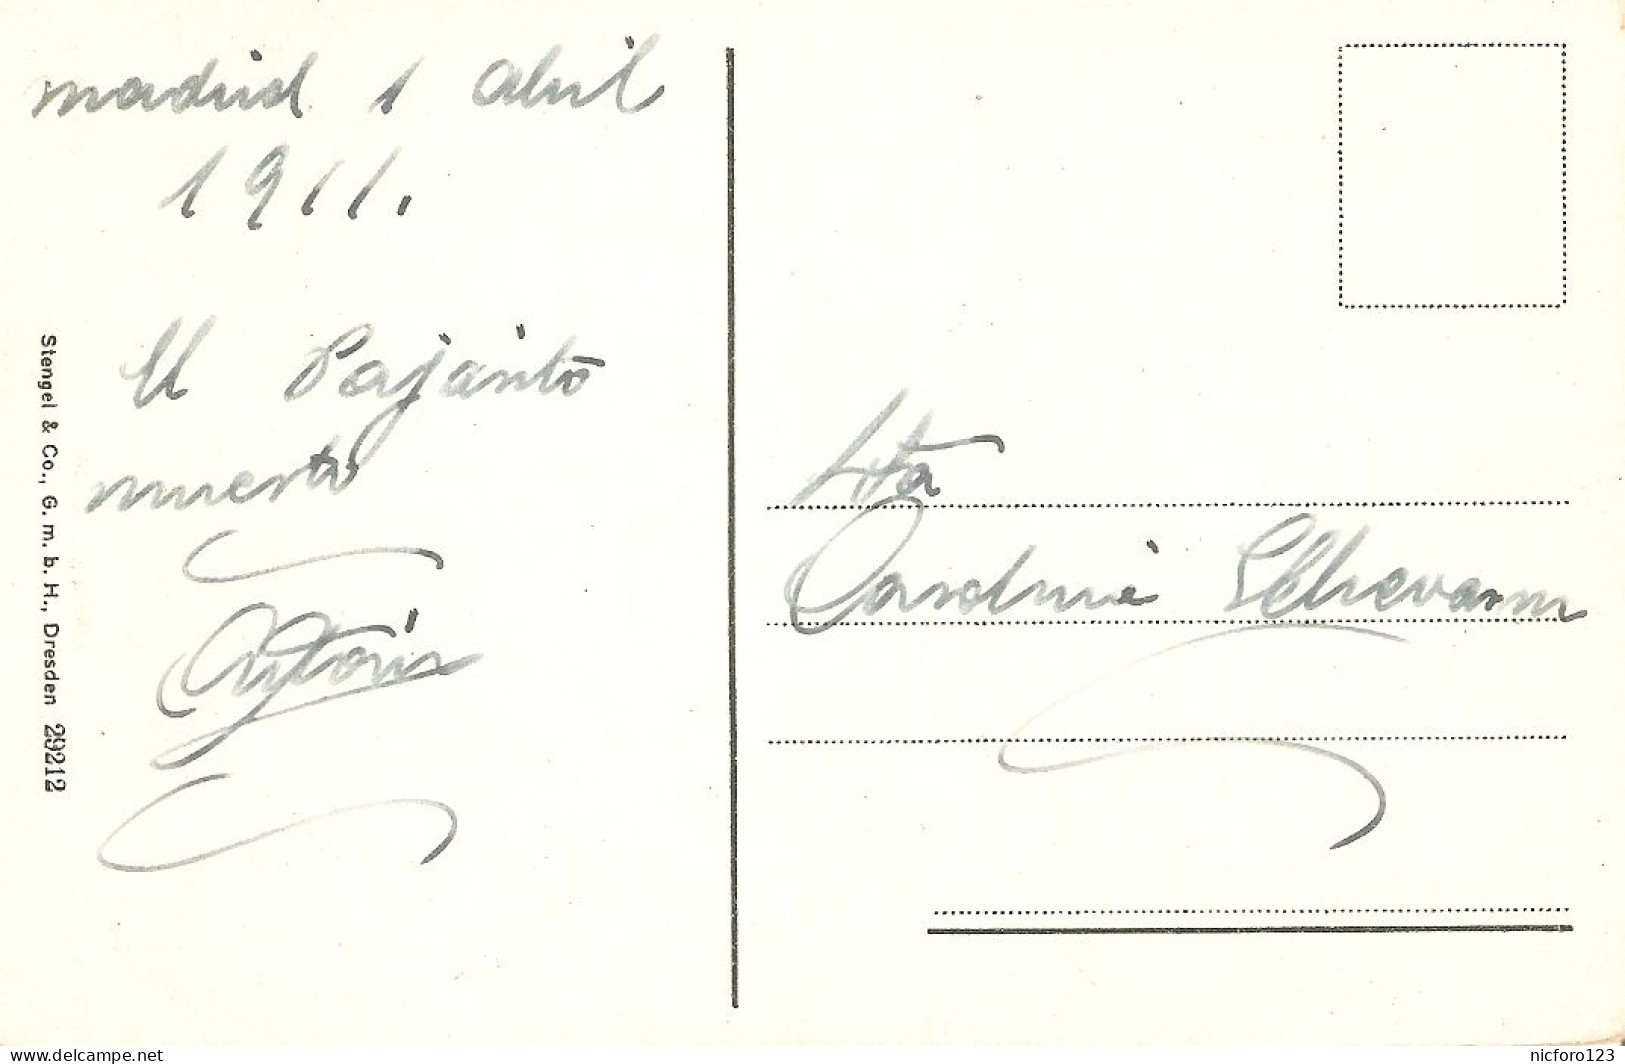 madrid 1 abril
1911.
El Pajarito
muerto
Antonio
Stengel & Co., G. m. b. H., Dresden 29212
Sta
Carolina
www.delcampe.net
nicforo123